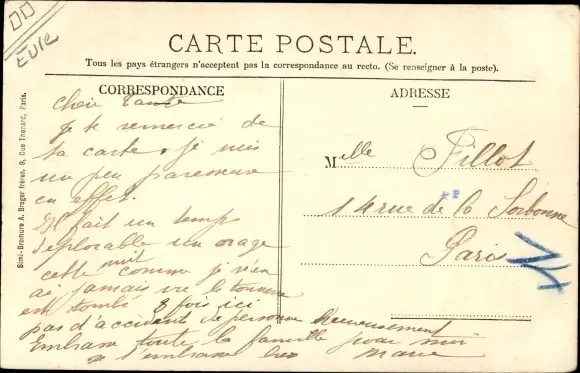 Eure
CARTE POSTALE.
Tous les pays étrangers n'acceptent pas la correspondance au recto. (Se renseigner à la poste).
CORRESPONDANCE
ADRESSE
Simi-Bromure A. Breger frères, 9, Rue Thenard, Paris.
Chère Tante
je te remercie de
ta carte. je suis
un peu paresseuse
en effet.
Il fait un temps
deplorable un orage
cette nuit comme je n'en
ai jamais vu le tonnerre
est tombé 3 fois ici
pas d'accident de personne heureusement
Embrasse toute la famille pour moi
je t'embrasse
Marie
Melle Fillot
14 rue de la Sorbonne
Paris